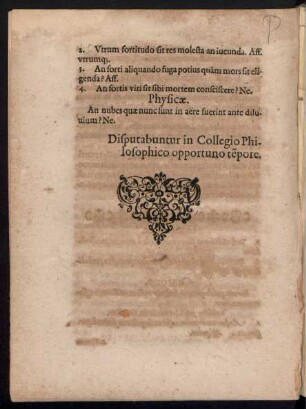 2. Vtrum fortitudo sit res molesta an iucunda. Aff.
vtrumq;.
3. An forti aliquando fuga potius quàm mors sit eli-
genda? Aff.
4. An fortis viri sit sibi mortem consciscere? Ne.
Physicæ.
An nubes quæ nunc sunt in aëre fuerint ante dilu-
uium? Ne.
Disputabuntur in Collegio Phi-
losophico opportuno tẽpore.